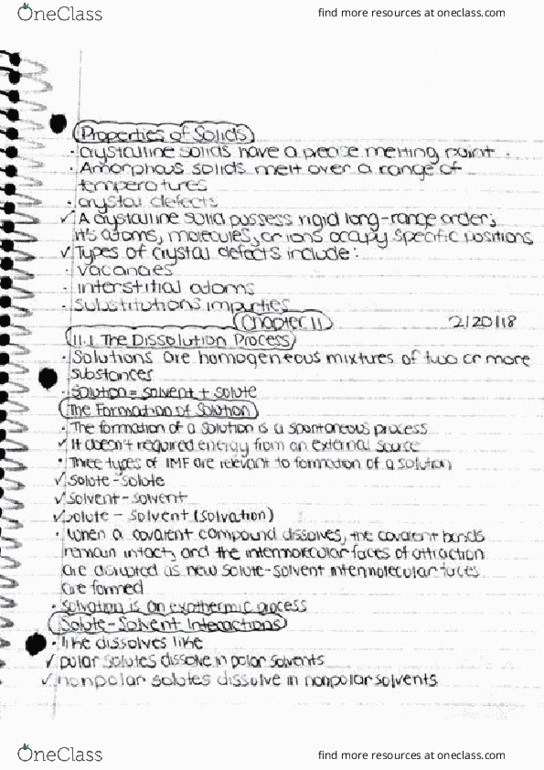 OneClass
find more resources at oneclass.com
Properties of Solids
• crystalline solids have a precise melting point.
• Amorphous solids melt over a range of
temperatures
• crystal defects
✓ A crystalline solid possess rigid long-range order;
it's atoms, molecules, or ions occupy specific positions
✓ Types of crystal defects include:
• vacancies
• interstitial atoms
• substitutions impurties
Chapter 11 2/20/18
11.1 The Dissolution Process
• Solutions are homogeneous mixtures of two or more
substances
• solution = solvent + solute
The Formation of Solution
• The formation of a solution is a spontaneous process
✓ It doesn't required energy from an external source
• Three types of IMF are relevant to formation of a solution
✓ solute-solute
✓ solvent-solvent
✓ solute - solvent (solvation)
• when a covalent compound dissolves, the covalent bonds
remain intact, and the intermolecular forces of attraction
are disrupted as new solute-solvent intermolecular forces
are formed
• solvation is an exothermic process
Solute-Solvent Interactions
• like dissolves like
✓ polar solutes dissolve in polar solvents
✓ nonpolar solutes dissolve in nonpolar solvents
OneClass
find more resources at oneclass.com